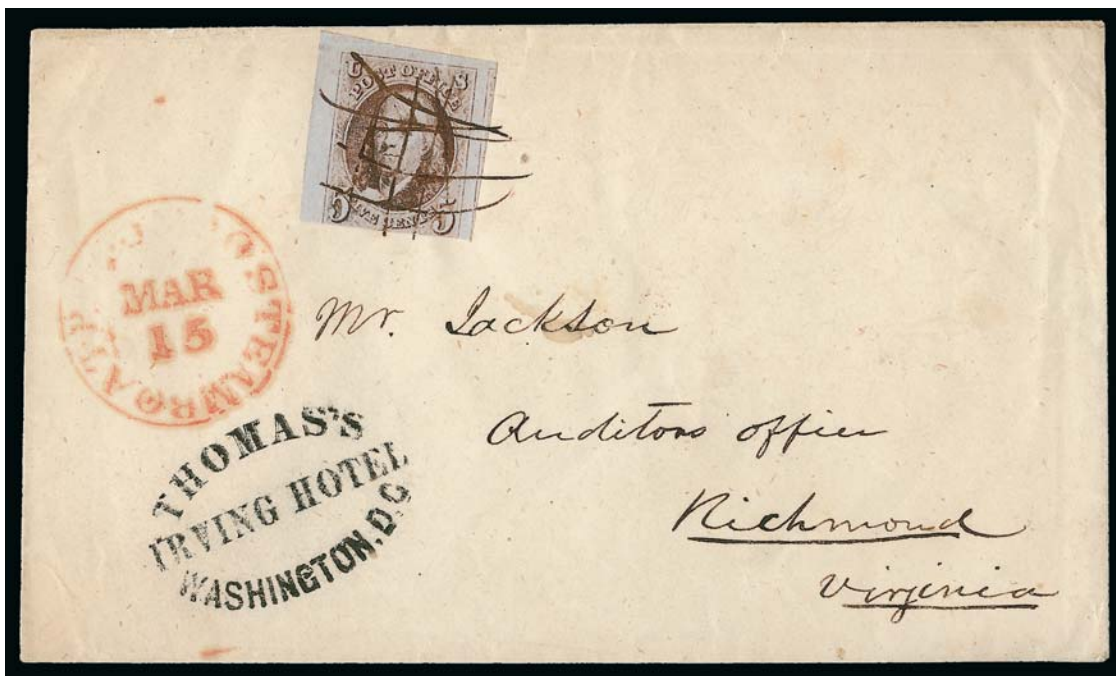 U S
POST OFFICE
FIVE CENTS
5 5
STEAMBOAT
MAR
15
THOMAS'S
IRVING HOTEL
WASHINGTON, D.C
Mr. Jackson
Auditors office
Richmond
Virginia